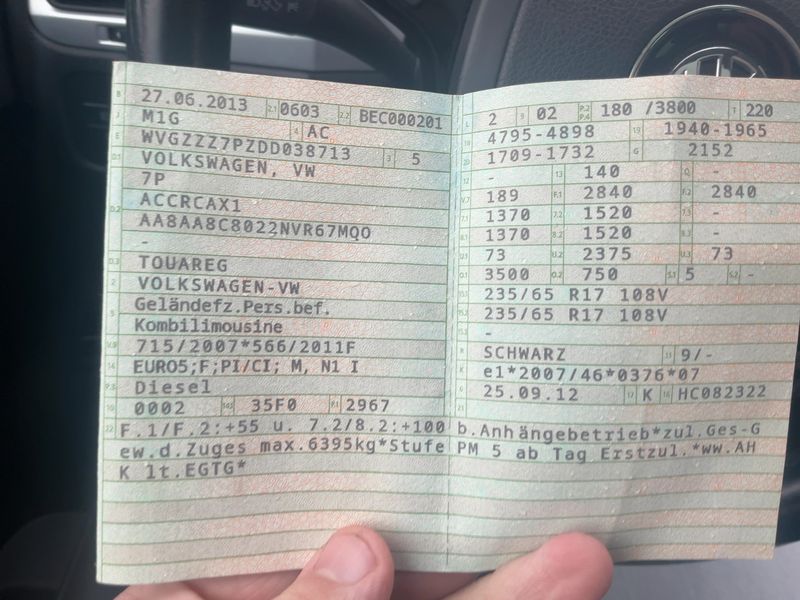 B 27.06.2013 2.1 0603 2.2 BEC000201
J M1G 4 AC
E WVGZZZ7PZDD038713 3 5
D.1 VOLKSWAGEN, VW
7P
D.2 ACCRCAX1
AA8AA8C8022NVR67MQO
-
D.3 TOUAREG
2 VOLKSWAGEN-VW
5 Geländefz.Pers.bef.
Kombilimousine
V.9 715/2007*566/2011F
14 EURO5;F;PI/CI; M, N1 I
P.3 Diesel
10 0002 14.1 35F0 P.1 2967
L 2 9 02 P.2 P.4 180 /3800 T 220
18 4795-4898 19 1940-1965
20 1709-1732 G 2152
12 - 13 140 Q -
V.7 189 F.1 2840 F.2 2840
7.1 1370 7.2 1520 7.3 -
8.1 1370 8.2 1520 8.3 -
U.1 73 U.2 2375 U.3 73
O.1 3500 O.2 750 S.1 5 S.2 -
15.1 235/65 R17 108V
15.2 235/65 R17 108V
15.3 -
R SCHWARZ 11 9/-
K e1*2007/46*0376*07
6 25.09.12 17 K 16 HC082322
21
22 F.1/F.2:+55 u. 7.2/8.2:+100 b.Anhängebetrieb*zul.Ges-G
ew.d.Zuges max.6395kg*Stufe PM 5 ab Tag Erstzul.*ww.AH
K lt.EGTG*